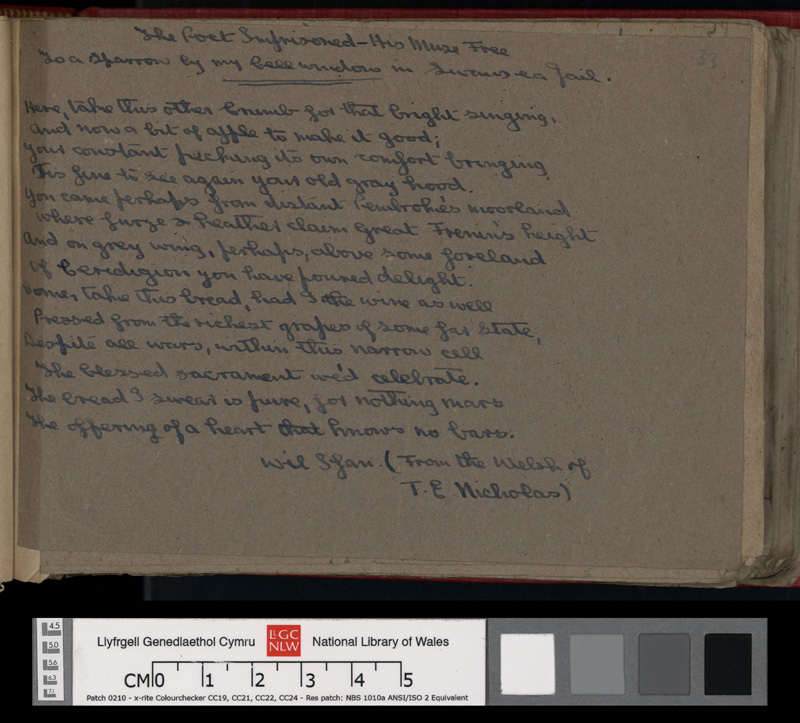 The Poet Imprisoned - His Muse Free
To a Sparrow by my Cell window in Swansea Jail.
33
Here, take this other crumb for that bright singing,
And now a bit of apple to make it good;
Your constant pecking its own comfort bringing
Tis fine to see again your old gray hood.
You came perhaps from distant Pembroke's moorland
Where furze & heather claim Great Frenin's height
And on grey wing, perhaps, above some foreland
Of Ceridigion you have poured delight.
Come, take this bread, had I the wine as well
Pressed from the richest grapes of some far State,
Despite all wars, within this narrow cell
The blessed sacrament we'd celebrate.
The bread I swear is pure, for nothing mars
The offering of a heart that knows no bars.
Wil Ifan. (From the Welsh of
T. E Nicholas)
4.5
5.0
5.6
6.3
7.1
Llyfrgell Genedlaethol Cymru LlGC NLW National Library of Wales
CM 0 1 2 3 4 5
Patch 0210 - x-rite Colourchecker CC19, CC21, CC22, CC24 - Res patch: NBS 1010a ANSI/ISO 2 Equivalent